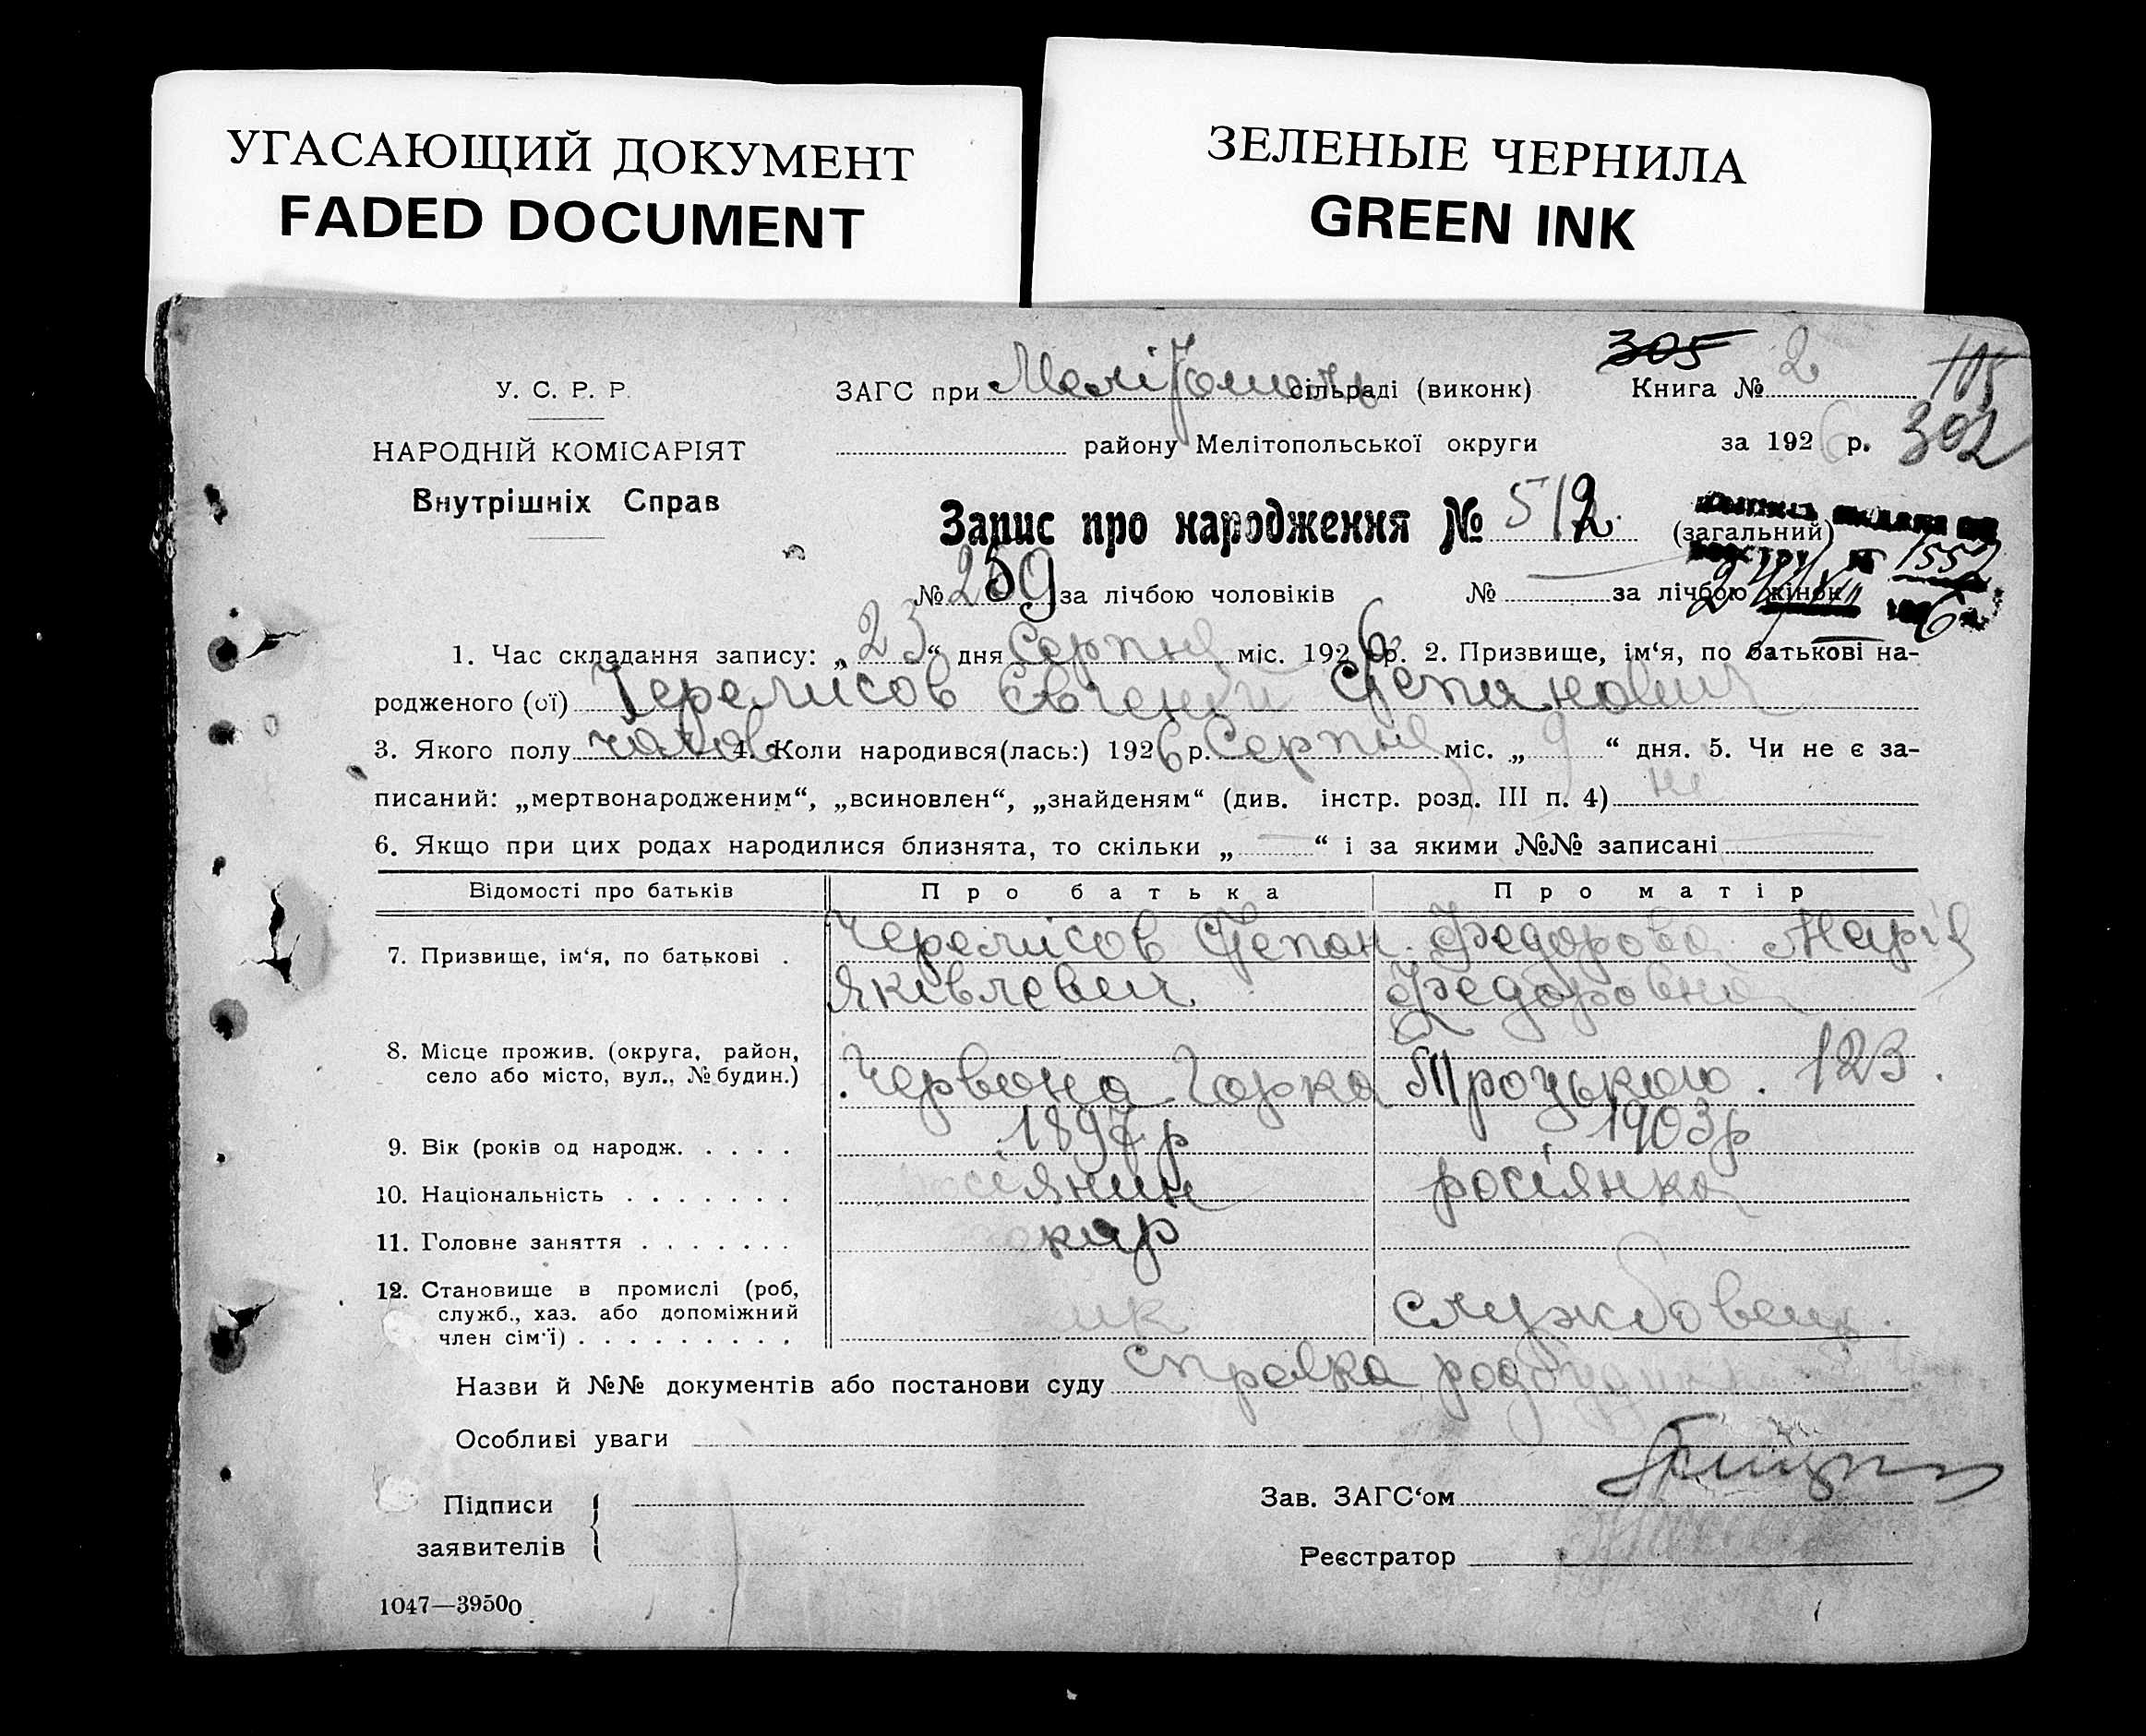 УГАСАЮЩИЙ ДОКУМЕНТ
FADED DOCUMENT
ЗЕЛЕНЫЕ ЧЕРНИЛА
GREEN INK
305
У. С. Р. Р.
НАРОДНІЙ КОМІСАРІЯТ
Внутрішніх Справ
ЗАГС при Мелітополь сільраді (виконк) Книга № 2
105
району Мелітопольської округи за 1926 р. 302
Запис про народження № 512 (загальний)
1552
№ 259 за лічбою чоловіків № за лічбою жінок
1. Час складання запису: „23“ дня Серпня міс. 1926 р. 2. Призвище, ім‘я, по батькові на-
родженого (ої) Черемисов Євгений Степанович
3. Якого полу чолов 4. Коли народився(лась:) 1926 р. Серпня міс. „9“ дня. 5. Чи не є за-
писаний: „мертвонародженим“, „всиновлен“, „знайденям“ (див. інстр. розд. III п. 4) ні
6. Якщо при цих родах народилися близнята, то скільки „ “ і за якими №№ записані
Відомості про батьків Про батька Про матір
7. Призвище, ім‘я, по батькові . Черемисов Степан Федорова Марія
Яківлевич Федоровна
8. Місце прожив. (округа, район,
село або місто, вул., № будин.) Червона Горка Троцького. 123.
9. Вік (років од народж. . . . . 1897 р 1903 р
10. Національність . . . . . . . росіянин росіянка
11. Головне заняття . . . . . . . токар
12. Становище в промислі (роб,
служб., хаз. або допоміжний
член сім‘ї) . . . . . . . . . службовець.
Назви й №№ документів або постанови суду справка
Особливі уваги
Підписи
заявителів
Зав. ЗАГС‘ом
Реєстратор
1047—39500